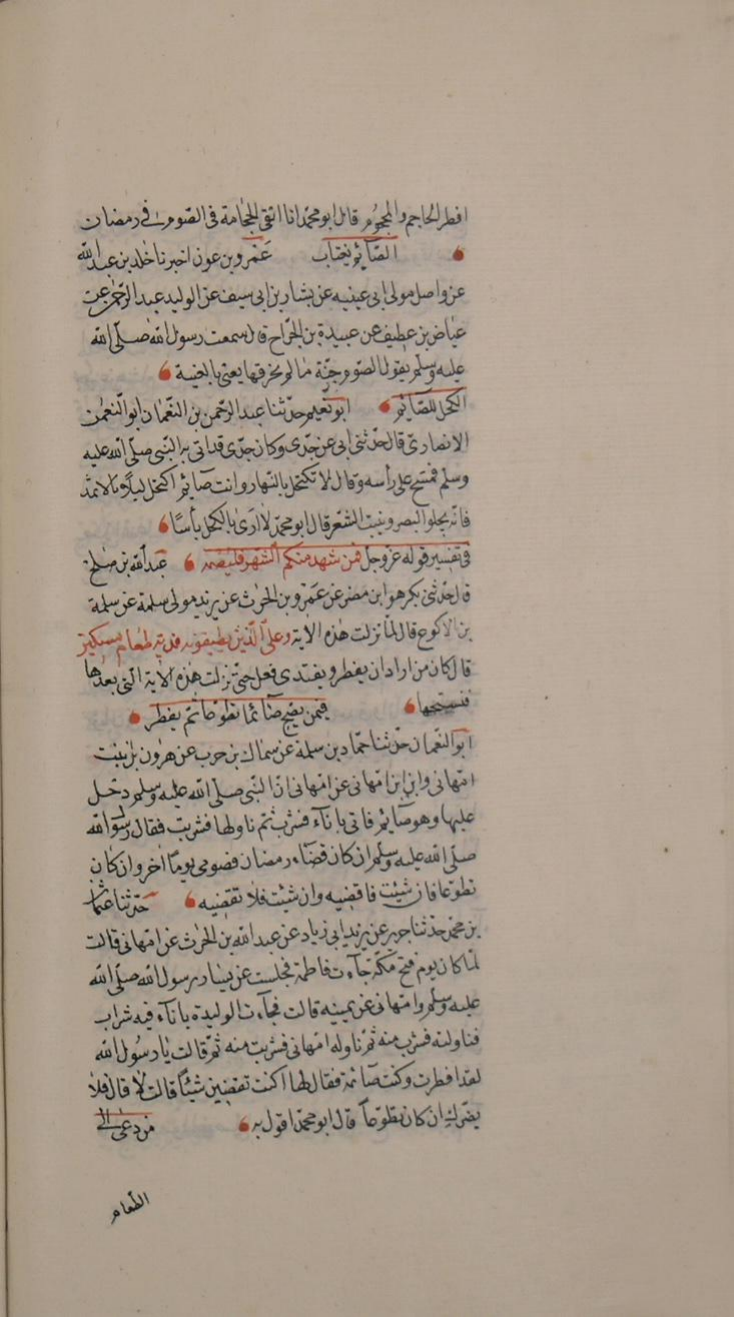 افطر الحاجم والمحجوم قال ابو محمد انا اتقى الحجامة فى الصوم فى رمضان
الصائم يغتاب عمرو بن عون اخبرنا خلد بن عبد الله
عن واصل مولى ابى عيينه عن بشار بن ابى سيف عن الوليد عبد الرحمن عن
عياض بن عطيف عن عبيدة بن الجراح قال سمعت رسول الله صلى الله
عليه وسلم يقول الصوم جنة ما لم يخرقها يعنى بالغيبة
الكحل للصائم ابو نعيم حدثنا عبد الرحمن بن النعمان ابو النعمن
الانصارى قال حدثنى ابى عن جدى وكان جدى قد اتى به النبى صلى الله عليه
وسلم فمسح على راسه وقال لا تكتحل بالنهار وانت صائم اكتحل ليلا بالاثمد
فانه يجلو البصر وينبت الشعر قال ابو محمد لا ارى بالكحل بأسا
فى تفسير قوله عز وجل فمن شهد منكم الشهر فليصمه عبد الله بن صلح
قال حدثنى بكر هو ابن مضر عن عمرو بن الحرث عن يزيد مولى سلمة عن سلمة
بن الاكوع قال لما نزلت هذه الاية وعلى الذين يطيقونه فدية طعام مسكين
قال كان من اراد ان يفطر ويفتدى فعل حتى نزلت هذه الاية التى بعدها
فنسختها فيمن يصبح صائما تطوعا ثم يفطر
ابو النعمان حدثنا حماد بن سلمة عن سماك بن حرب عن هرون بن بنت
ام هانى وابن ابن ام هانى عن ام هانى ان النبى صلى الله عليه وسلم دخل
عليها وهو صائم فاتى باناء فشرب ثم ناولها فشربت فقال رسول الله
صلى الله عليه وسلم ان كان قضاء رمضان فصومى يوما اخر وان كان
تطوعا فان شيئت فاقضيه وان شيئت فلا تقضيه حدثنا عثمان
بن محمد حدثنا جرير عن يزيد ابى زياد عن عبد الله بن الحرث عن ام هانى قالت
لما كان يوم فتح مكة جاءت فاطمة فجلست عن يسار رسول الله صلى الله
عليه وسلم وام هانى عن يمينه قالت فجاءت الوليدة باناء فيه شراب
فناولته فشرب منه ثم ناوله ام هانى فشربت منه ثم قالت يا رسول الله
لقد افطرت وكنت صائمة فقال لها اكنت تقضين شيئا قالت لا قال فلا
يضرك ان كان تطوعا قال ابو محمد اقول به من دعى الى
الطعام